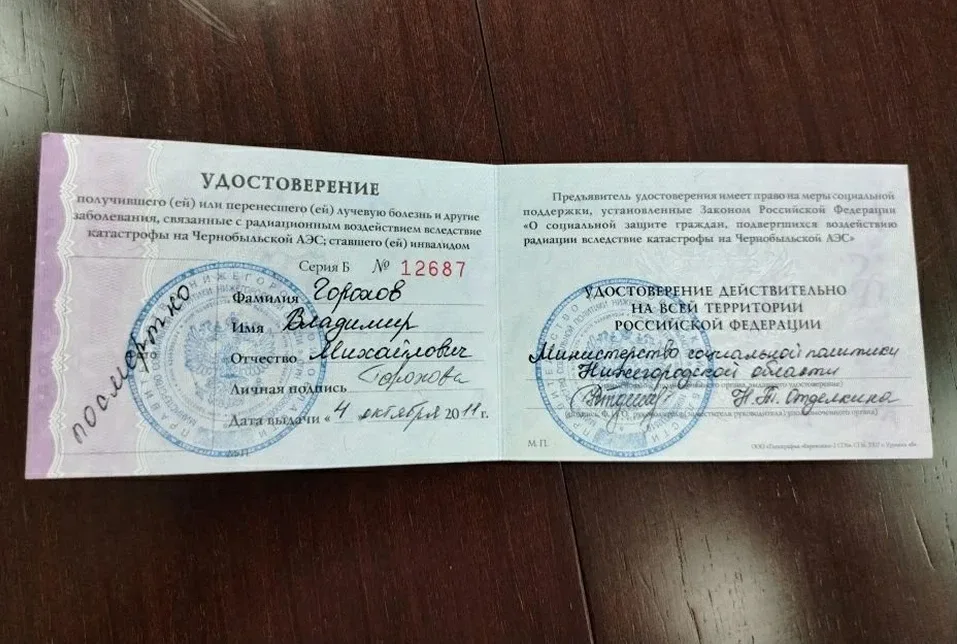 УДОСТОВЕРЕНИЕ
получившего (ей) или перенесшего (ей) лучевую болезнь и другие
заболевания, связанные с радиационным воздействием вследствие
катастрофы на Чернобыльской АЭС; ставшего (ей) инвалидом
Серия Б № 12687
Фамилия Горохов
Имя Владимир
Отчество Михайлович
Личная подпись Горохова
Дата выдачи «4 октября 2011 г.
посмертно
Предъявитель удостоверения имеет право на меры социальной
поддержки, установленные Законом Российской Федерации
«О социальной защите граждан, подвергшихся воздействию
радиации вследствие катастрофы на Чернобыльской АЭС»
УДОСТОВЕРЕНИЕ ДЕЙСТВИТЕЛЬНО
НА ВСЕЙ ТЕРРИТОРИИ
РОССИЙСКОЙ ФЕДЕРАЦИИ
Министерство социальной политики
Нижегородской области
Н.Т. Отделкина
М.П.